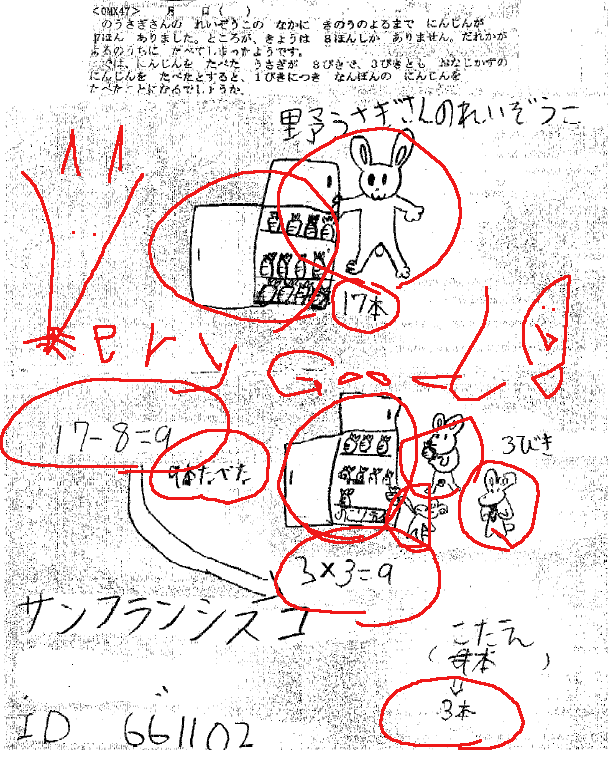 <OMX47> 月 日( )
のうさぎさんの れいぞうこの なかに きのうのよるまで にんじんが
17ほん ありました。ところが、きょうは 8ほんしか ありません。だれかが
よるのうちに たべてしまったようです。
さて、にんじんを たべた うさぎが 3びきで、3びきとも おなじかずの
にんじんを たべたとすると、1ぴきにつき なんぼんの にんじんを
たべたことになるでしょうか。
野うさぎさんのれいぞうこ
17本
Very
17-8=9
9本たべた
3びき
3×3=9
サンフランシスコ
こたえ
( 本 )
3本
ID 661102